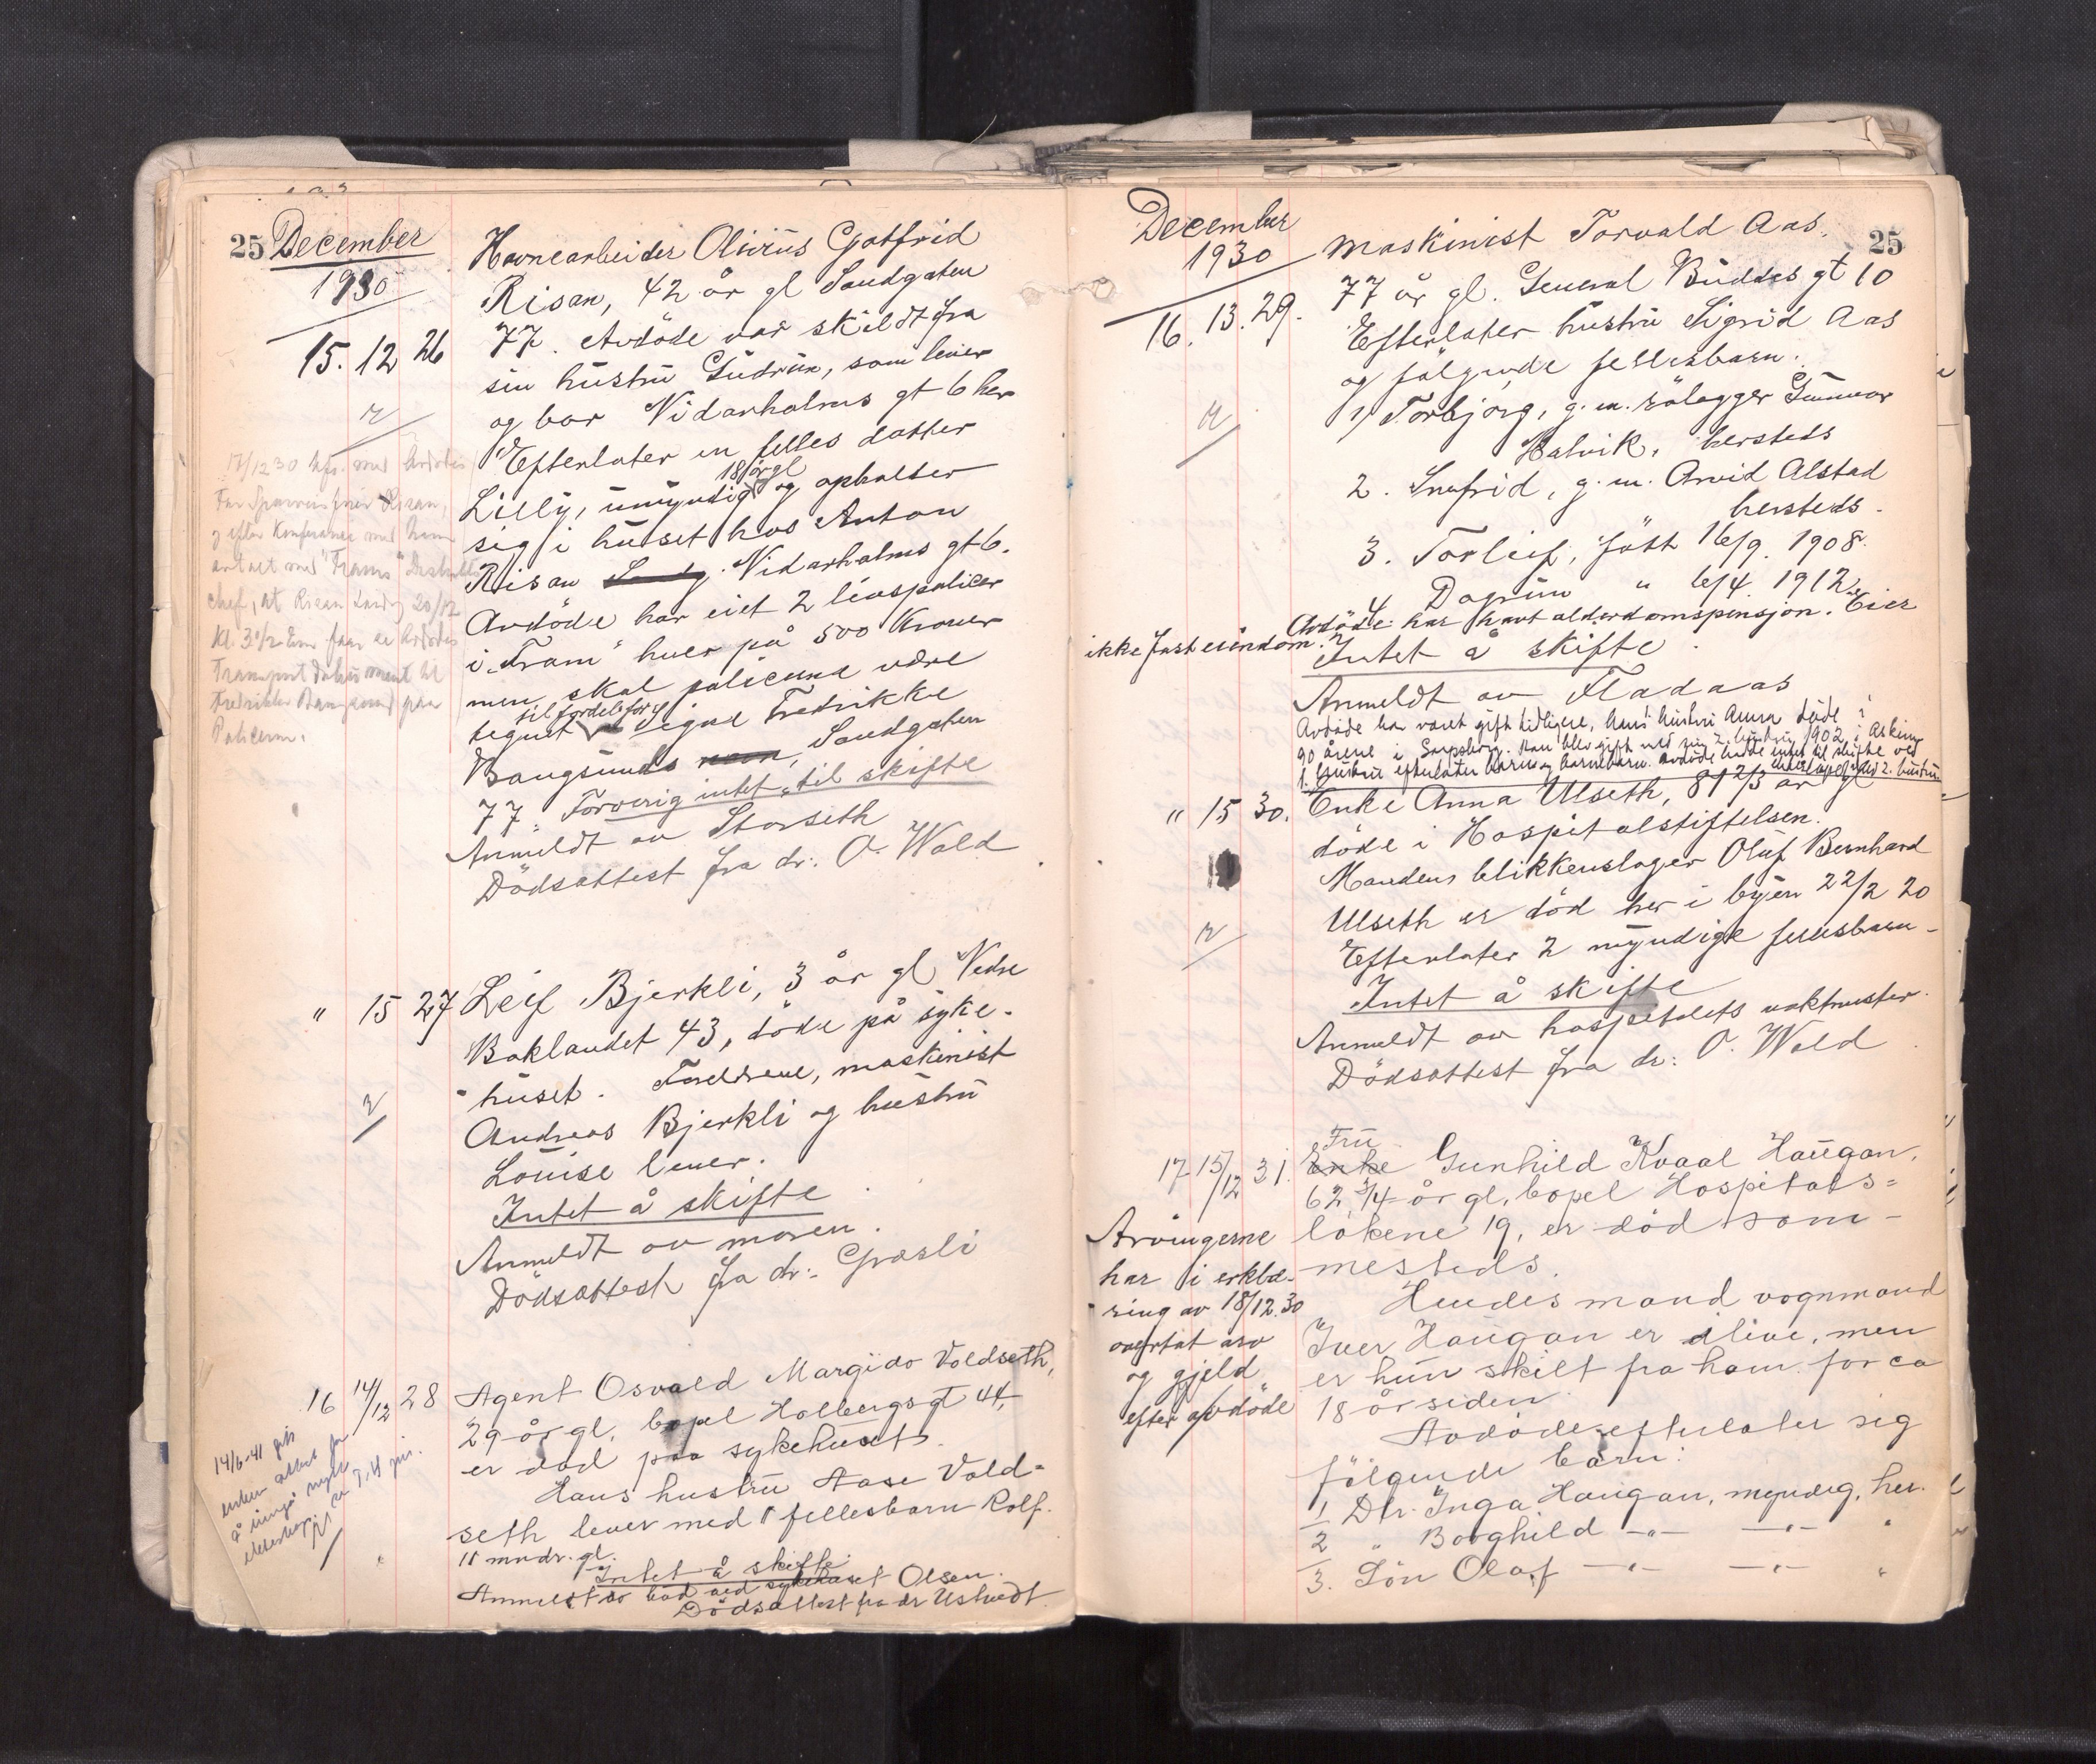 25 December
1930
15. 12 26
Havnearbeider Olivius Gotfrid
Risan, 42 år gl Sandgaten
77. Avdöde var skildt fra
sin hustru Gudrun, som lever
og bor Nidarholms gt 6 her
Efterlater en felles datter
18 år gl
Lilly, umyndig og opholter
sig i huset hos Anton
Risan Nidarholms gt 6.
Avdöde har eiet 2 livspolicer
i "Fram" hver på 500 kroner
men skal policene være
til fordel for
tegnet Signe Fredrikke
Bangsunds Sandgaten
77. Forövrig intet til skifte
Anmeldt av Storseth
Dödsattest fra dr: O. Wold
17/12 30 med
Far Risan,
og efter Konferanse med ham
avtalt med "Frams"
chef, at Risan 20/12
Kl. 3 1/2
Transport dokument til
Fredrikke Bangsund paa
Policerne.
" 15 27
Leif Bjerkli, 3 år gl Nedre
Baklandet 43, döde på syke-
huset. Foreldrene, maskinist
Andreas Bjerkli og hustru
Louise lever.
Intet å skifte
Anmeldt av moren.
Dödsattest fra dr: Græsli
16 14/12 28
Agent Osvald Margido Voldseth,
29 år gl, bopel Holbergsgt 44,
er död paa sykehuset.
Hans hustru Aase Vold-
seth lever med 1 fellesbarn Rolf.
11 mndr. gl.
Intet å skifte
Anmeldt av bud ved sykehuset Olsen.
Dödsattest fra dr Ustvedt
14/6-41 gitt
enken attest for
å inngå nytt
ekteskap
December
1930
25
16. 13. 29.
Maskinist Torvald Aas.
77 år gl. General Buddes gt 10
Efterlater hustru Sigrid Aas
og fölgende fellesbarn.
1) Torbjörg, g.m. rölegger Gunnar
Hatvik, hersteds
2. Snefrid, g.m. Arvid Alstad
hersteds.
3. Torleif, födt 16/9. 1908.
4 Dagrun " 6/4. 1912.
Avdöde har havt alderdomspensjon. Eier
ikke fast eiendom.
Intet å skifte
Anmeldt av Fladaas
Avdöde har været gift tidligere, hans hustru Anna döde i
90 årene i Sarpsborg. Han blev gift med sin 2. hustru 1902 i Askim
1. hustru efterlater barn og barnebarn. Avdöde hadde intet til skifte ved
ekteskapet med 2. hustru
" 15 30.
Enke Anna Ulseth, 81 2/3 år gl
döde i Hospitalstiftelsen.
Manden blikkenslager Oluf Bernhard
Ulseth er död her i byen 22/2 20
Efterlater 2 myndige fellesbarn.
Intet å skifte
Anmeldt av hospitalets vaktmester.
Dödsattest fra dr: O. Wold
17 15/12 31.
Fru
Enke Gunhild Kvaal Haugan,
62 3/4 år gl, bopel Hospitals-
lökene 19, er död sam-
mesteds.
Hendes mand vognmand
Iver Haugan er ilive, men
er hun skilt fra ham for ca
18 år siden.
Avdöde efterlater sig
fölgende barn:
1 Dtr. Inga Haugan, myndig, her.
2 " Borghild -"- -"- "
3. Sön Olaf -"- -"- "
Arvingerne
har i erklæ-
ring av 18/12.30
overtat arv
og gjeld
efter avdöde